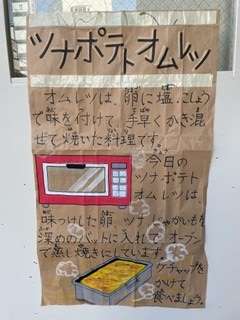 ツナポテトオムレツ
オムレツは、卵に塩、こしょう
で味を付けて、手早くかき混
ぜて焼いた料理です。
今日の
ツナポテト
オムレツは
味つけした卵、ツナ、じゃがいもを
深めのバットに入れて、オーブン
で蒸し焼きにしています。
ケチャップを
かけて
食べましょう。